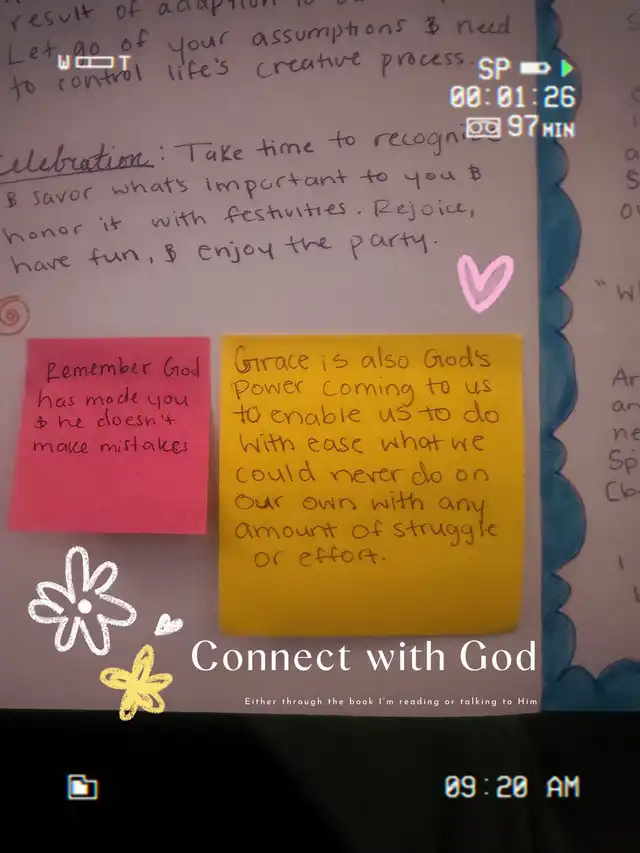 result of adaption to
Let go of your assumptions & need
to control life's creative process.
W T
SP
00:01:26
97MIN
Celebration: Take time to recognize
& savor what's important to you &
honor it with festivities. Rejoice,
have fun, & enjoy the party.
Remember God
has made you
& he doesn't
make mistakes
Grace is also God's
Power coming to us
to enable us to do
with ease what we
could never do on
our own with any
amount of struggle
or effort.
Connect with God
Either through the book I'm reading or talking to Him
09:20 AM